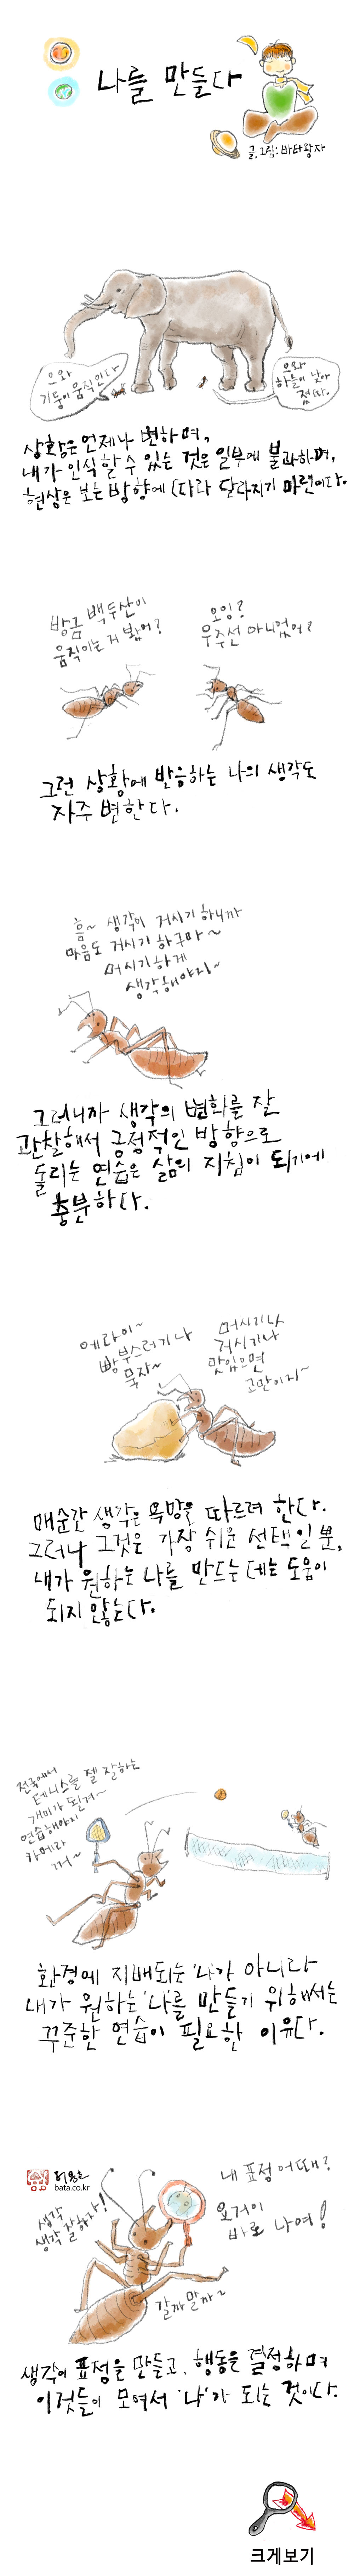 나를 만들다
글,그림:바타왕자
으와
기둥이 움직인다
으와
하늘이 낮아
졌다.
상황은 언제나 변하며,
내가 인식할 수 있는 것은 일부에 불과하며,
현상은 보는 방향에 따라 달라지기 마련이다.
방금 백두산이
움직이는 거 봤어?
오잉?
우주선 아니었어?
그런 상황에 반응하는 나의 생각도
자주 변한다.
흠~ 생각이 거시기 하니까
마음도 거시기 하구마~
머시기하게
생각해야지~
그러니까 생각의 변화를 잘
관찰해서 긍정적인 방향으로
돌리는 연습은 삶의 지침이 되기에
충분하다.
에라이~
빵 부스러기나
묵자~
머시기나
거시기나
맛있으면
그만이지~
매순간 생각은 욕망을 따르려 한다.
그러나 그것은 가장 쉬운 선택일 뿐,
내가 원하는 나를 만드는 데는 도움이
되지 않는다.
전국에서
테니스를 젤 잘하는
개미가 될겨~
연습해야지
카메라
꺼~
환경에 지배되는 '나'가 아니라
내가 원하는 '나'를 만들기 위해서는
꾸준한 연습이 필요한 이유다.
bata.co.kr
생각
생각 잘하자!
내 표정 어때?
요거이
바로 나여!
갈까 말까~
생각이 표정을 만들고, 행동을 결정하며
이것들이 모여서 '나'가 되는 것이다.
크게보기